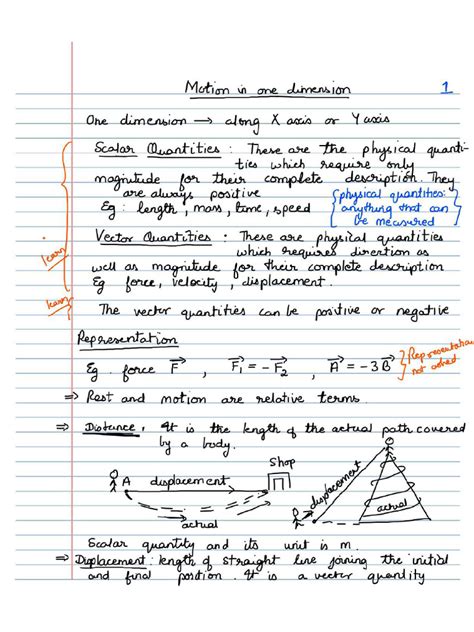 Motion in one dimension
1
One dimension → along X axis or Y axis
Scalar Quantities : These are the physical quanti-
ties which require only
magnitude for their complete description. They
are always positive
Eg : length, mass, time, speed
{physical quantities:
anything that can
be measured}
learn
Vector Quantities : These are physical quantities
which requires direction as
well as magnitude for their complete description
Eg force, velocity, displacement.
learn
The vector quantities can be positive or negative
Representation
Eg. force F⃗ , F⃗₁ = - F⃗₂ , A⃗ = -3 B⃗
Representation
not asked
⇒ Rest and motion are relative terms.
⇒ Distance : It is the length of the actual path covered
by a body.
Shop
A displacement
actual
displacement
actual
Scalar quantity and its unit is m.
⇒ Displacement : length of straight line joining the initial
and final position. It is a vector quantity